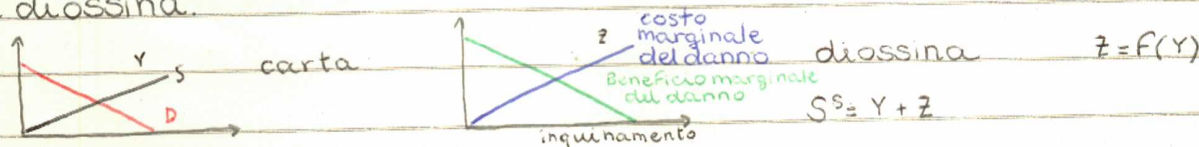 diossina.
Y S carta
D
Z costo marginale del danno
Beneficio marginale del danno
inquinamento
diossina Z = F(Y)
Sˢ = Y + Z